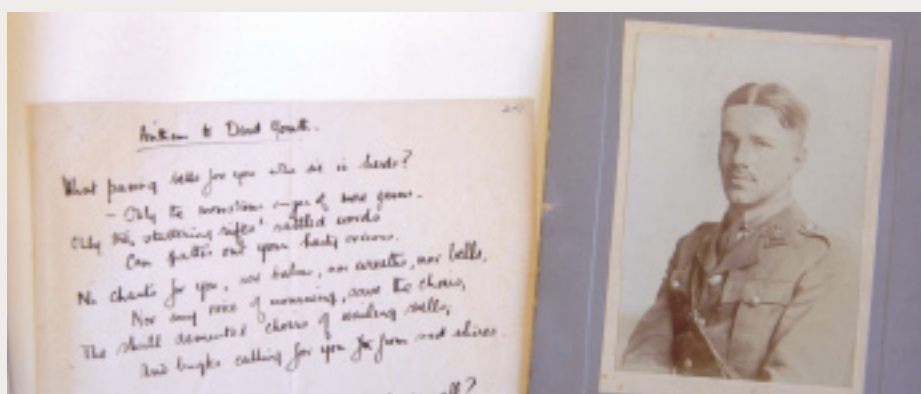 Anthem to Dead Youth.
What passing bells for you who die in herds?
- Only the monstrous anger of more guns.
Only the stuttering rifles' rattled words
Can patter out your hasty orisons.
No chants for you, nor balms, nor wreaths, nor bells,
Nor any voice of mourning, save the choirs,
The shrill demented choirs of wailing shells;
And bugles calling for you from sad shires.
all?